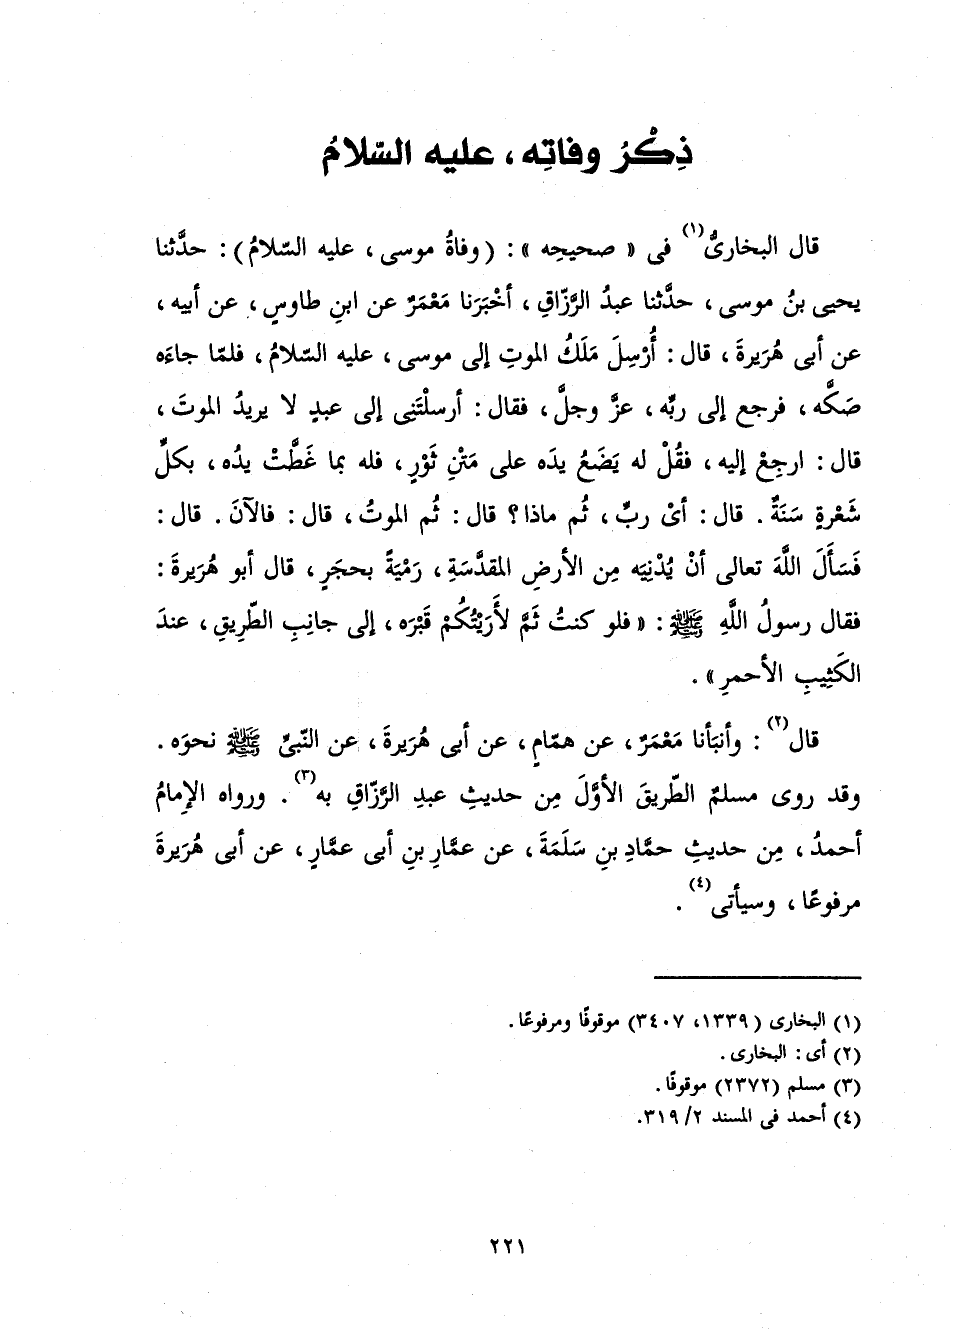 ذِكْرُ وفاتِه ، عليه السّلامُ
قال البخارىُّ(١) فى « صحيحِه » : ( وفاةُ موسى ، عليه السّلامُ ) : حدَّثنا
يحيى بنُ موسى ، حدَّثنا عبدُ الرَّزّاقِ ، أخْبَرَنا مَعْمَرٌ عن ابنِ طاوسٍ ، عن أبيه ،
عن أبى هُرَيرةَ ، قال : أُرْسِلَ مَلَكُ الموتِ إلى موسى ، عليه السّلامُ ، فلمّا جاءَه
صَكَّه ، فرجع إلى ربِّه ، عزَّ وجلَّ ، فقال : أرسلْتَنِى إلى عبدٍ لا يريدُ الموتَ ،
قال : ارجِعْ إليه ، فقُلْ له يَضَعُ يدَه على مَتْنِ ثَوْرٍ ، فله بما غَطَّتْ يدُه ، بكلِّ
شَعْرةٍ سَنَةٌ . قال : أىْ ربِّ ، ثُم ماذا ؟ قال : ثُم الموتُ ، قال : فالآنَ . قال :
فَسَأَلَ اللَّهَ تعالى أنْ يُدْنِيَه مِن الأرضِ المقدَّسَةِ ، رَمْيَةً بحجَرٍ ، قال أبو هُرَيرةَ :
فقال رسولُ اللَّهِ ﷺ : « فلو كنتُ ثَمَّ لأَرَيْتُكُمْ قَبْرَه ، إلى جانِبِ الطّرِيقِ ، عندَ
الكَثِيبِ الأحمرِ » .
قال(٢) : وأنبَأنا مَعْمَرٌ ، عن همّامٍ ، عن أبى هُرَيرةَ ، عن النّبىِّ ﷺ نحوَه .
وقد روى مسلمٌ الطّريقَ الأوَّلَ مِن حديثِ عبدِ الرَّزّاقِ به(٣) . ورواه الإمامُ
أحمدُ ، مِن حديثِ حمَّادِ بنِ سَلَمَةَ ، عن عمَّارِ بنِ أبى عمَّارٍ ، عن أبى هُرَيرةَ
مرفوعًا ، وسيأتى(٤) .
(١) البخارى (١٣٣٩، ٣٤٠٧) موقوفًا ومرفوعًا .
(٢) أى : البخارى .
(٣) مسلم (٢٣٧٢) موقوفًا .
(٤) أحمد فى المسند ٢/ ٣١٩.
٢٢١